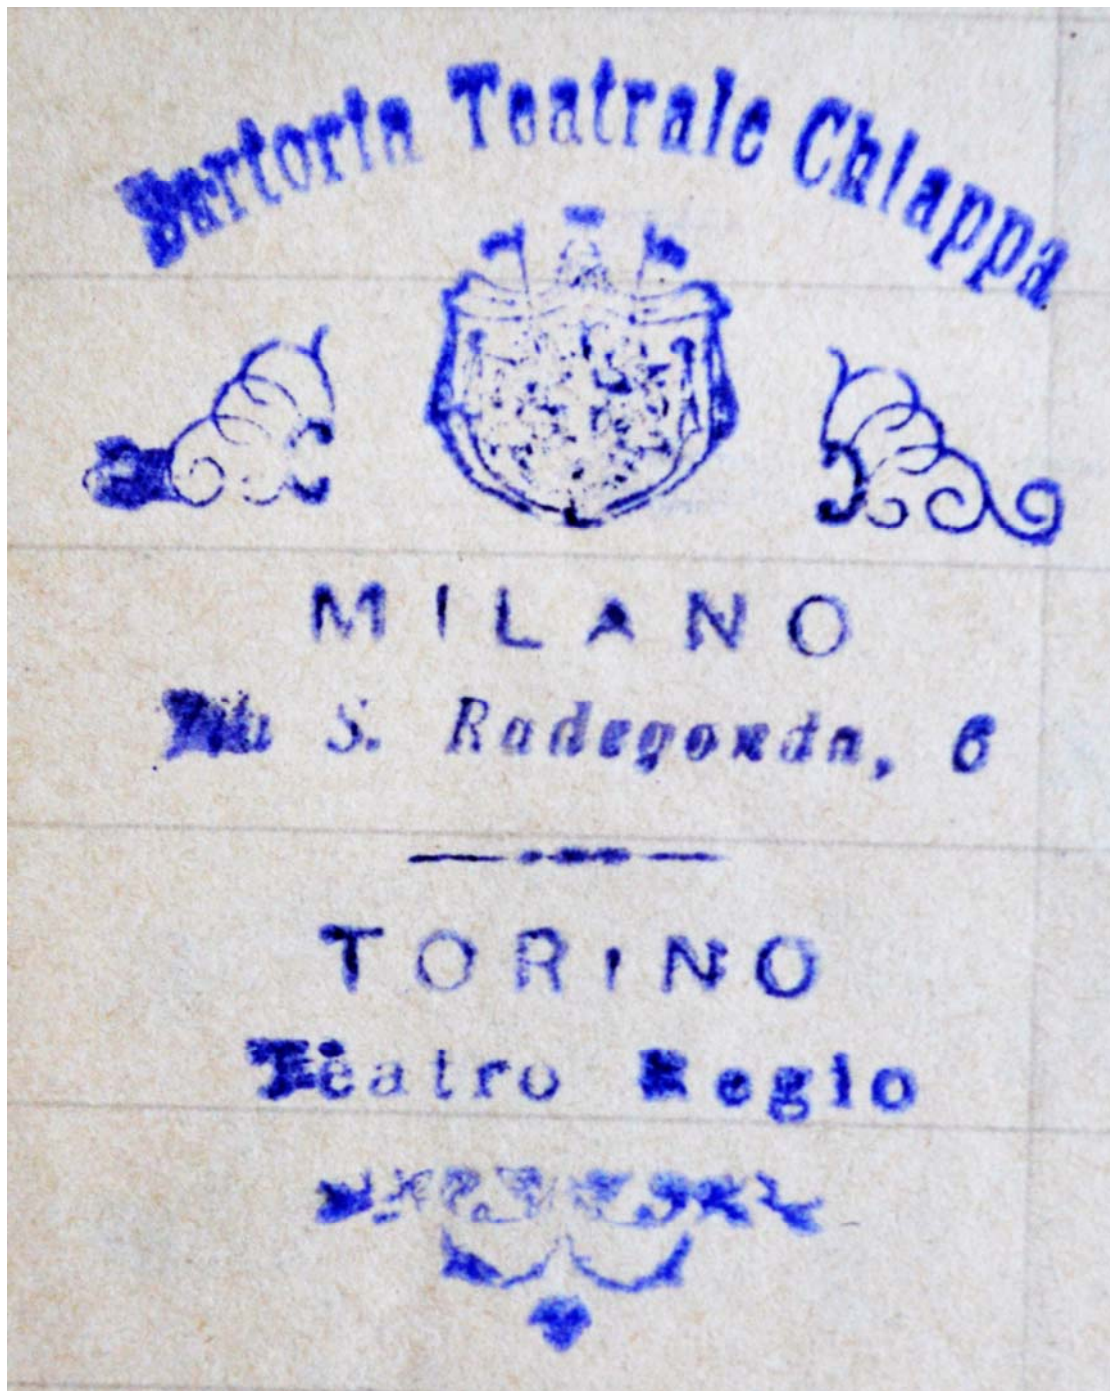 Sartoria Teatrale Chiappa
MILANO
Via S. Radegonda, 6
TORINO
Teatro Regio